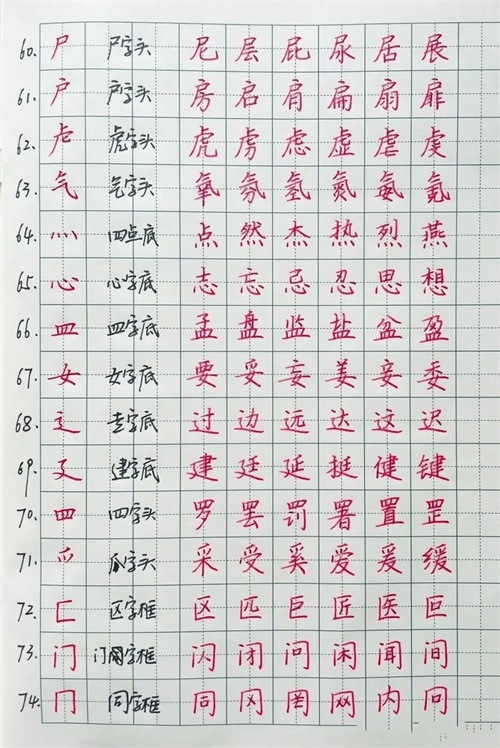 60. 尸 尸字头 尼 层 屁 尿 居 展
61. 户 户字头 房 启 肩 扁 扇 扉
62. 虍 虎字头 虎 虏 虑 虚 虐 虔
63. 气 气字头 氧 氛 氢 氮 氨 氪
64. 灬 四点底 点 然 杰 热 烈 燕
65. 心 心字底 志 忘 忌 忍 思 想
66. 皿 四字底 孟 盘 监 盐 盆 盈
67. 女 女字底 要 妥 妄 姜 妾 委
68. 辶 走字底 过 边 远 达 这 迟
69. 廴 建字底 建 廷 延 挺 健 键
70. 罒 四字头 罗 罢 罚 署 置 罡
71. 爫 爪字头 采 受 奚 爱 爰 缓
72. 匚 区字框 区 匹 巨 匠 医 叵
73. 门 门闻字框 闪 闭 问 闲 闻 间
74. 冂 同字框 同 冈 罔 网 内